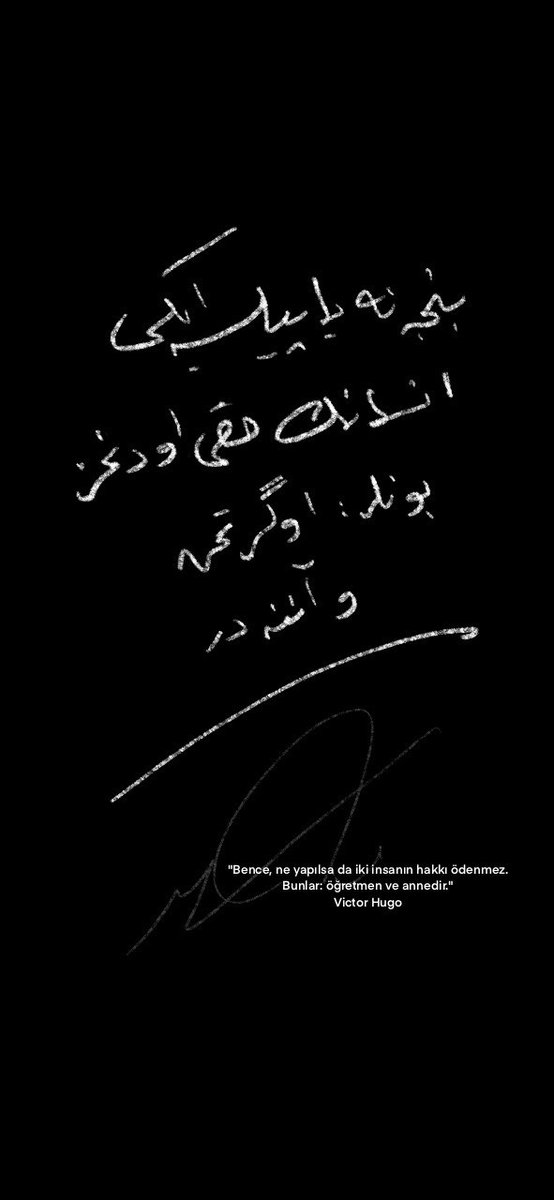 بنجه نه یاپیلسه ایکی
انسانك حقی اودنمز
بونلر: اوگرتمن
و آننه در
"Bence, ne yapılsa da iki insanın hakkı ödenmez.
Bunlar: öğretmen ve annedir."
Victor Hugo